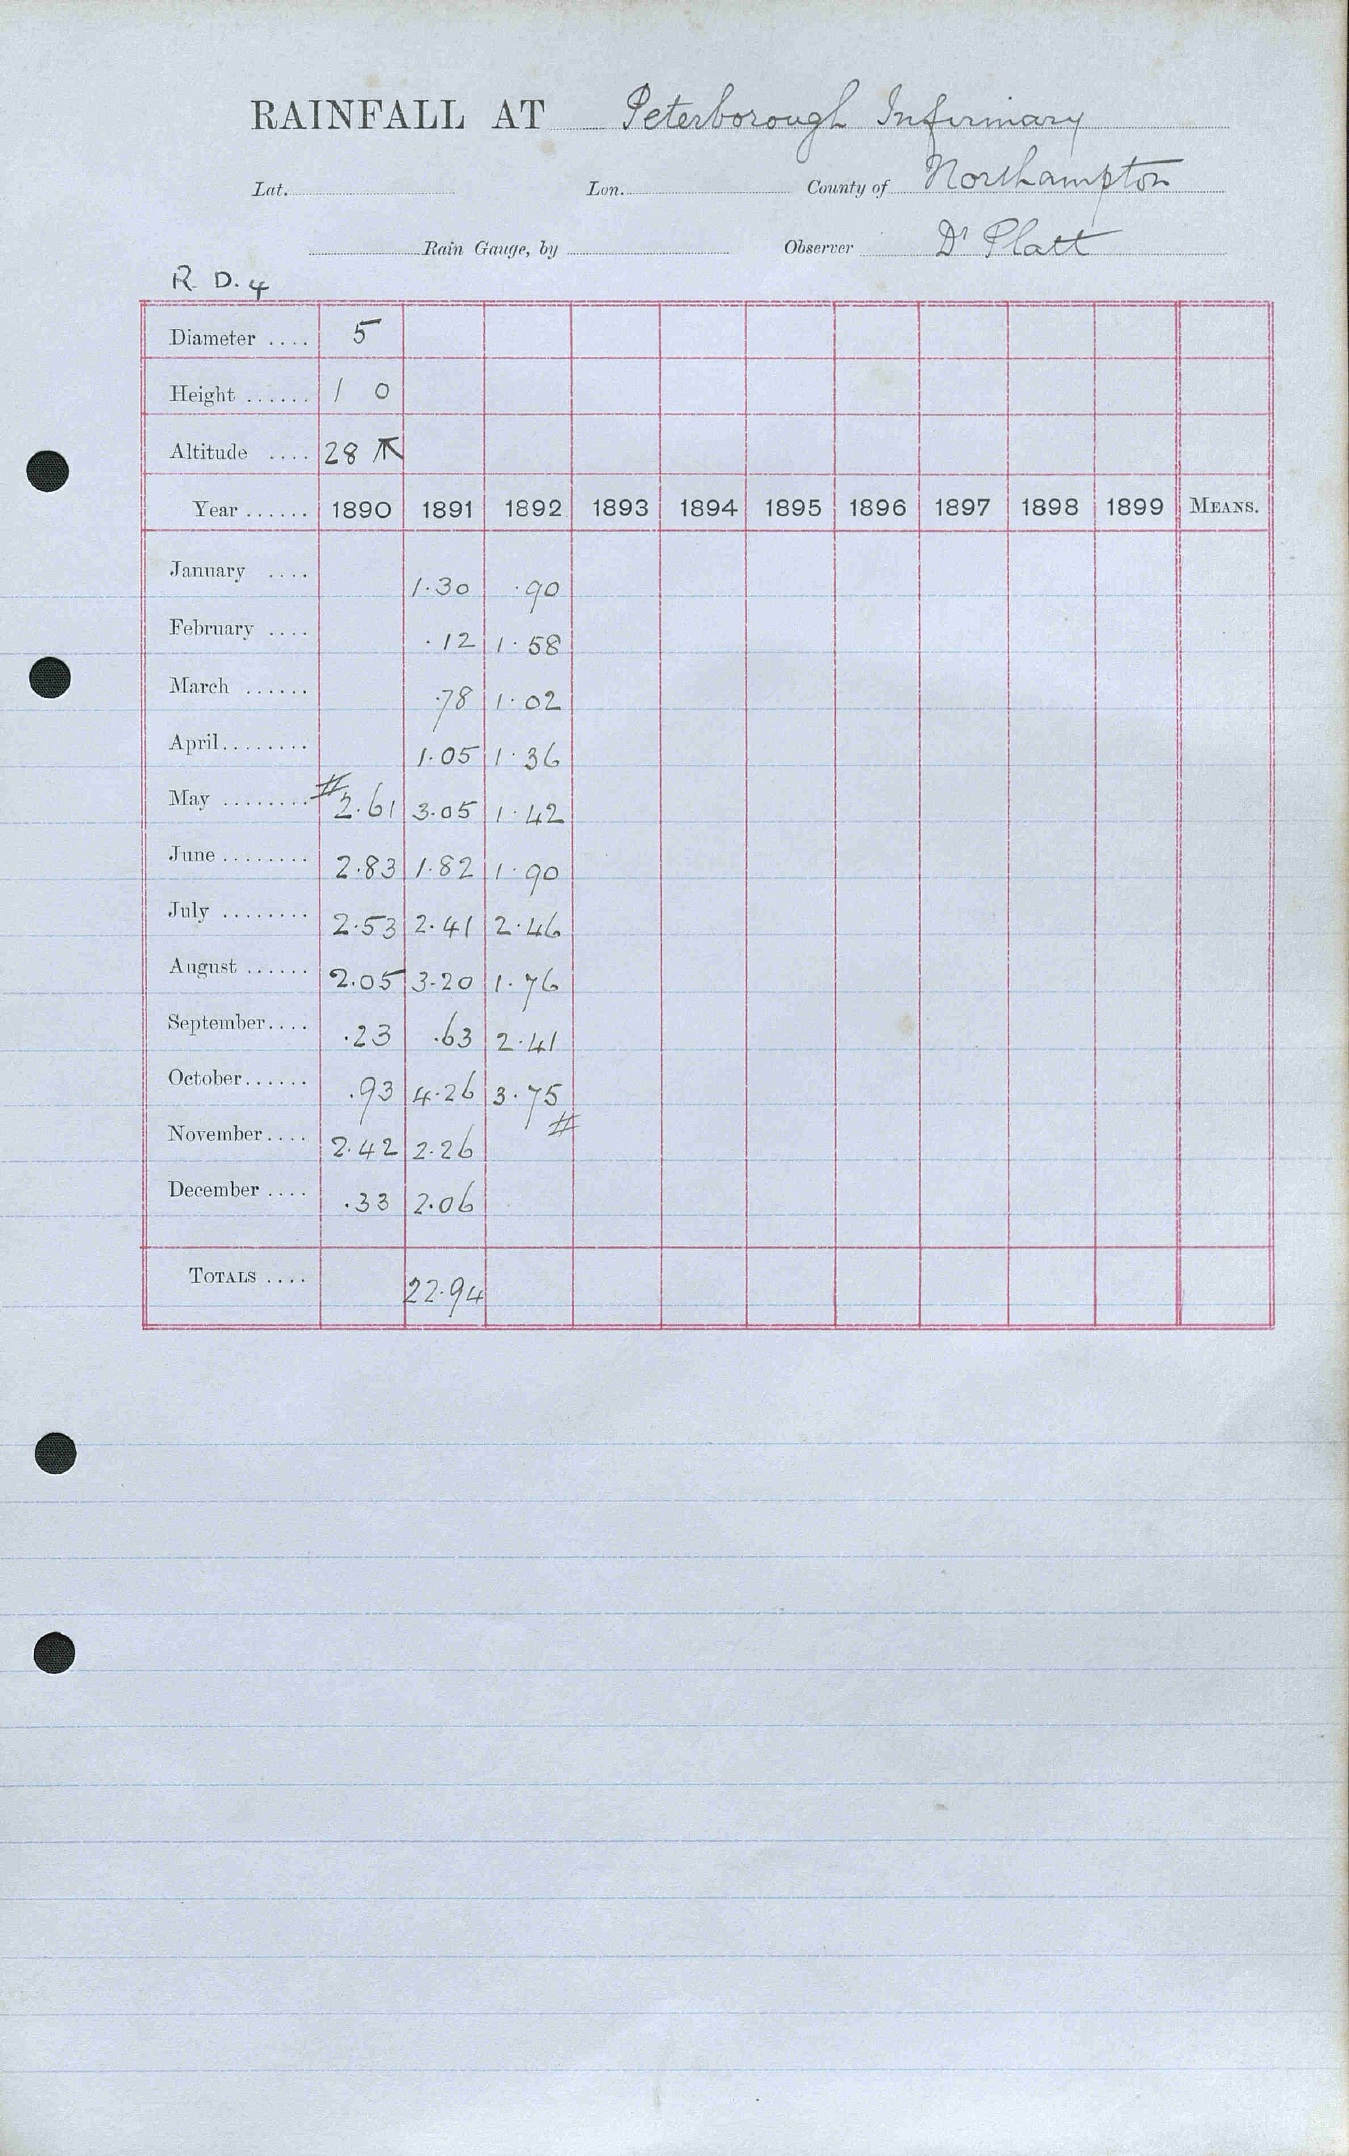 RAINFALL AT Peterborough Infirmary
Lat. Lon. County of Northampton
Rain Gauge, by Observer Dr Platt
R. D. 4
Diameter .... 5
Height ...... 1 0
Altitude .... 28
Year ...... 1890 1891 1892 1893 1894 1895 1896 1897 1898 1899 MEANS.
January .... 1.30 .90
February .... .12 1.58
March ...... .78 1.02
April........ 1.05 1.36
May ........ # 2.61 3.05 1.42
June ........ 2.83 1.82 1.90
July ........ 2.53 2.41 2.46
August ...... 2.05 3.20 1.76
September.... .23 .63 2.41
October...... .93 4.26 3.75
November.... 2.42 2.26 #
December .... .33 2.06
TOTALS .... 22.94